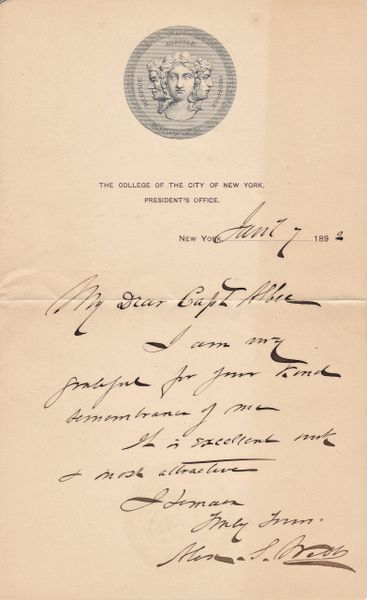 RESPICE ADSPICE PROSPICE
THE COLLEGE OF THE CITY OF NEW YORK,
PRESIDENT'S OFFICE.
NEW YORK Jan'y 7 1892
My Dear Capt Albee
I am very
grateful for your kind
remembrance of me
It is excellent work
& most attractive
I remain
Truly Yours.
Alex. S. Webb